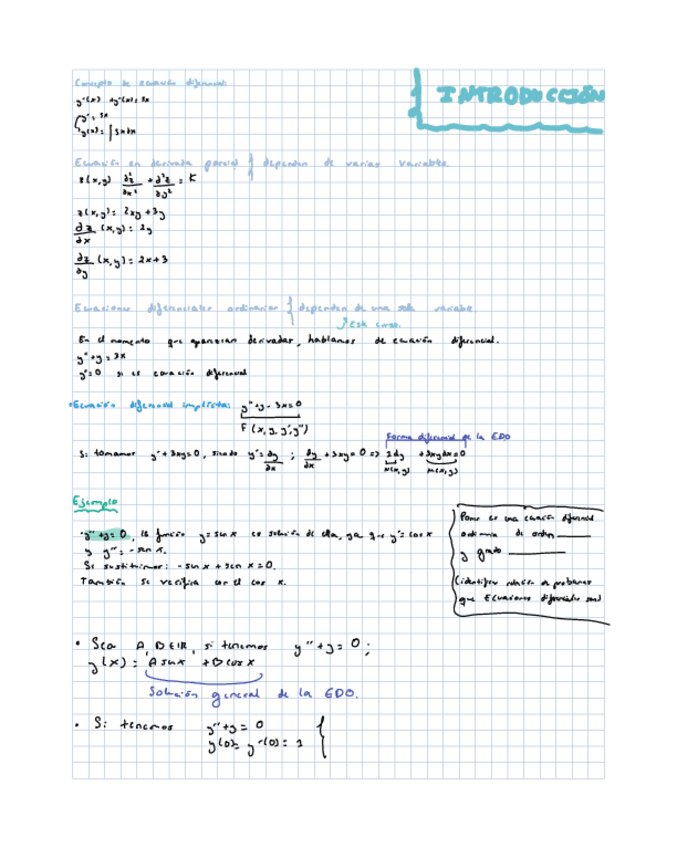 INTRODUCCIÓN
Concepto de ecuación diferencial:
y''(x) + y'(x) = 3x
y' = 3x
y(x) = ∫ 3x dx
Ecuación en derivada parcial { dependen de varias variables.
z(x,y) ∂²z/∂x² + ∂²z/∂y² = K
z(x,y) = 2xy + 3y
∂z/∂x (x,y) = 2y
∂z/∂y (x,y) = 2x + 3
Ecuaciones diferenciales ordinarias { dependen de una sola variable.
Este curso.
En el momento que aparezcan derivadas, hablamos de ecuación diferencial.
y'' + y = 3x
y' = 0 si es ecuación diferencial
• Ecuación diferencial implícita: y'' + y - 3x = 0
F(x, y, y', y'')
Forma diferencial de la EDO
Si tomamos y' + 3xy = 0, siendo y' = dy/dx ; dy/dx + 3xy = 0 => 1dy + 3xydx = 0
N(x,y) M(x,y)
Ejemplo
· y'' + y = 0, la función y = sen x es solución de ella, ya que y' = cos x
y y'' = - sen x.
Si sustituimos: - sen x + sen x = 0.
También se verifica con el cos x.
Poner es una ecuación diferencial
ordinaria de orden
y grado
(identificar relación de problemas
que Ecuaciones diferenciales son)
• Sea A, B ∈ ℝ, si tenemos y'' + y = 0;
y(x) = A sen x + B cos x
Solución general de la EDO.
• Si tenemos y'' + y = 0
y(0) = y'(0) = 1